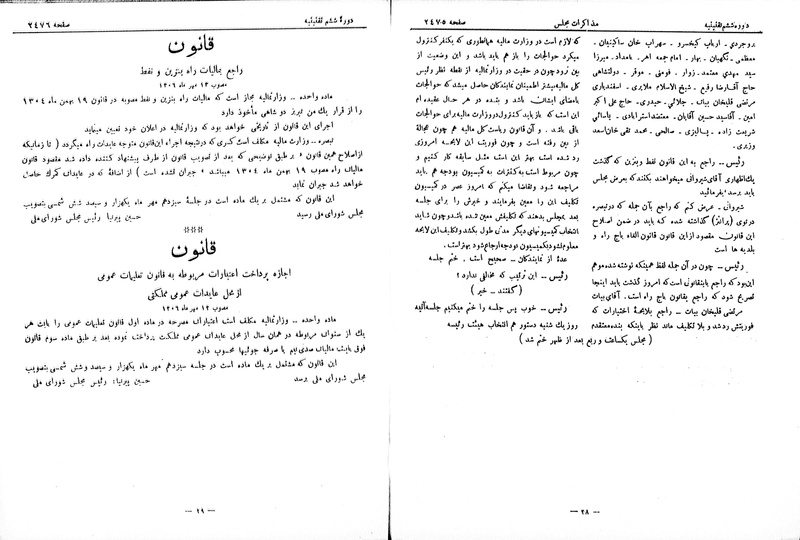 دوره ششم تقنینیه
مذاکرات مجلس
صفحه ۲۴۷۵
بروجردی ـ ارباب کیخسرو ـ سهراب خان ساکینیان ـ
معظمی ـ نگهبان ـ بهار ـ امام جمعه اهر ـ بامداد ـ میرزا
سید مهدی معتمد ـ زوار ـ فومنی ـ موقر ـ دولتشاهی
حاج آقا رضا رفیع ـ شیخ الاسلام ملایری ـ اسفندیاری
مرتضی قلیخان بیات ـ جلائی ـ حیدری ـ حاج علی اکبر
امین ـ آقاسید حسین آقایان ـ معتضد استرآبادی ـ یاسائی
شریعت زاده ـ پالیزی ـ صالحی ـ محمد تقی خان اسعد
وزیری ـ
رئیس ـ راجع به این قانون نفط وبنزین که گذشت
یک اظهاری آقای شیروانی میخواهند بکنند که بعرض مجلس
باید برسد بفرمائید
شیروانی ـ عرض کنم که راجع بآن جمله که در تبصره
در توی (پرانتز) گذاشته شده که باید در ضمن اصلاح
این قانون مقصود از این قانون قانون الغاء باج راه و
بلدیه ها است
رئیس ـ چون در آن جمله لفظ همینکه نوشته شده و هم
این بود که راجع باینقانونی است که امروز گذشت باید اینجا
تصریح شود که راجع بقانون باج راه است. آقای بیات
مرتضی قلیخان بیات ـ راجع بلایحهٔ اختیارات که
فوریتش رد شد و بلا تکلیف ماند نظر باینکه بنده معتقدم
که لازم است در وزارت مالیه همانطوری که یکنفر کنترل
میکرد حوالجات را باز هم باید باشد و این وضعیت از
بین نرود چون در حقیقت در وزارتمالیه از نقطه نظر رئیس
کل مالیه بیشتر اطمینان نمایندگان حاصل میشد که حوالجات
بامضای ایشان باشد و بنده در هر حال عقیده ام
این است که باز باید کنترل در وزارت مالیه برای حوالجات
باقی باشد . و آن قانون ریاست کل مالیه هم چون عجالةً
از بین رفته است و چون فوریت این لایحه امروزی
رد شده است بهتر این است مثل سابقه کار کنیم و
چون مربوط است به کنترات به کمیسیون بودجه هم باید
مراجعه شود و تقاضا میکنم که امروز عصر در کمیسیون
تکلیف این را معین بفرمایند و خبرش را برای جلسه
بعد بمجلس بدهند که تکلیفش معین شده باشد و چون شاید
انتخاب کمیسیونهای دیگر مدتی طول بکشد و تکلیف این لایحه
معلوم نشود بکمیسیون بودجه ارجاع شود بهتر است .
عدهٔ از نمایندگان ـ صحیح است . ختم جلسه
رئیس ـ این ترتیب که مخالفی ندارد ؟
( گفتند ـ خیر )
رئیس ـ خوب پس جلسه را ختم میکنیم جلسه آتیه
روز یک شنبه دستور هم انتخاب هیئت رئیسه
( مجلس یکساعت و ربع بعد از ظهر ختم شد )
ـ ۲۸ ـ
دورهٔ ششم تقنینیه
صفحه ۲۴۷۶
قانون
راجع بمالیات راه بنزین و نفط
مصوب ۱۳ مهر ماه ۱۳۰۶
ماده واحده ـ وزارتمالیه مجاز است که مالیات راه بنزین و نفط مصوبه در قانون ۱۹ بهمن ماه ۱۳۰۴
را از قرار یک من تبریز دو شاهی مأخوذ دارد
اجرای این قانون از تاریخی خواهد بود که وزارتمالیه در اعلان خود تعیین مینماید
تبصره ـ وزارت مالیه مکلف است کسری که در نتیجه اجراء این قانون متوجه عایدات راه میگردد ( تا زمانیکه
از اصلاح همین قانون « بر طبق توضیحی که بعد از تصویب قانون از طرف پیشنهاد کننده داده شد مقصود قانون
مالیات راه مصوب ۱۹ بهمن ماه ۱۳۰۴ میباشد » جبران نشده است ) از اضافهٔ که در عایدات گمرک حاصل
خواهد شد جبران نماید
این قانون که مشتمل بر یک ماده است در جلسهٔ سیزدهم مهر ماه یکهزار و سیصد شش شمسی بتصویب
مجلس شورای ملی رسید
حسین پیرنیا رئیس مجلس شورای ملی
***
قانون
اجازه پرداخت اعتبارات مربوطه به قانون تعلیمات عمومی
از محل عایدات عمومی مملکتی
مصوب ۱۳ مهر ماه ۱۳۰۶
ماده واحده ـ وزارتمالیه مکلف است اعتبارات مصرحه در ماده اول قانون تعلیمات عمومی را بابت هر
یک از سنوات مربوطه در همان سال از محل عایدات عمومی مملکت پرداخت نموده بعد بر طبق ماده سوم قانون
فوق بابت مالیات صدی نیم یا صرفه جوئیها محسوب دارد
این قانون که مشتمل بر یک ماده است در جلسه سیزدهم مهر ماه یکهزار و سیصد وشش شمسی بتصویب
مجلس شورای ملی رسید
حسین پیرنیا: رئیس مجلس شورای ملی
ـ ۲۹ ـ